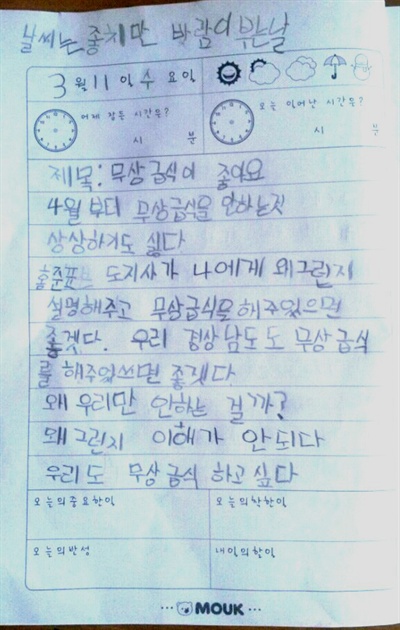 날씨는 좋치만 바람이 부는날
3월 11일 수요일
어제 잠든 시간은?
시 분
오늘 일어난 시간은?
시 분
제목: 무상급식이 좋아요
4월 부터 무상급식을 안하는것
상상하기도 싫다
홍준표 도지사가 나에게 왜그런지
설명해주고 무상급식을 해주있으면
좋겟다. 우리 경상남도도 무상급식
를 해주있쓰면 좋겟다
왜 우리만 안하는 걸까?
왜그런지 이해가 안되다
우리도 무상급식 하고싶다
오늘의 중요한일
오늘의 착한일
오늘의 반성
내일의 할일
MOUK